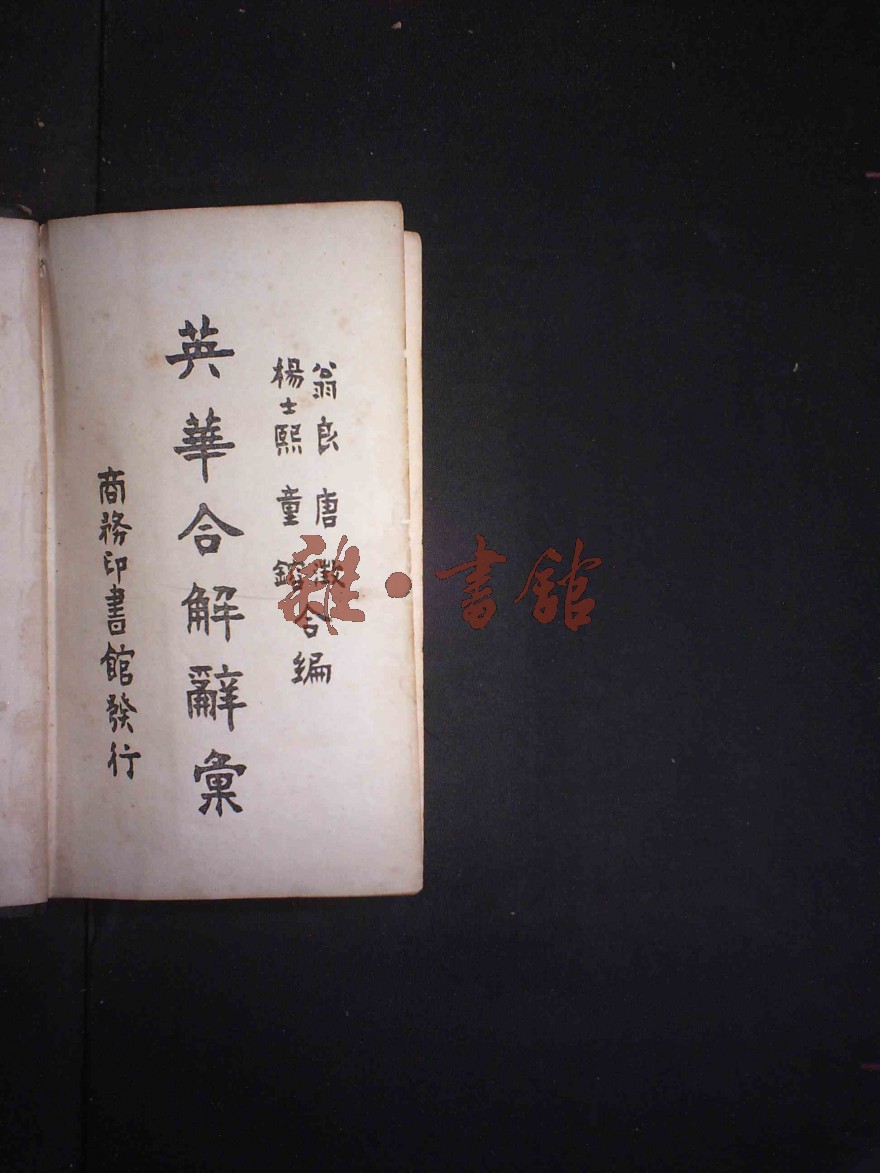 翁良 唐澂合編
楊士熙 童鎔
英華合解辭彙
商務印書館發行
雜·書館